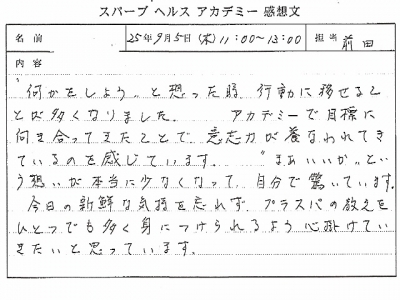 スパーブ ヘルス アカデミー 感想文
名前 25年9月5日(木)11:00〜13:00 担当 前田
内容
"何かをしよう"と想った時、行動に移せるこ
とが多くなりました。 アカデミーで目標に
向き合ってきたことで、意志力が養なわれてき
ているのを感じています。 "まぁいいか"とい
う想いが本当に少なくなって、自分で驚いています。
今日の新鮮な気持を忘れず、プラスパの教えを
ひとつでも多く身につけられるよう心掛けてい
きたいと思っています。